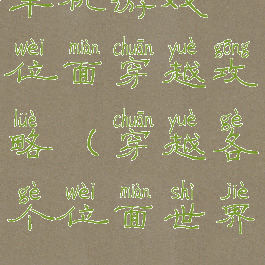 单机游戏
wèi miàn chuān yuè gōng
位面穿越攻
lüè chuān yuè gè
略(穿越各
gè wèi miàn shì jiè
个位面世界